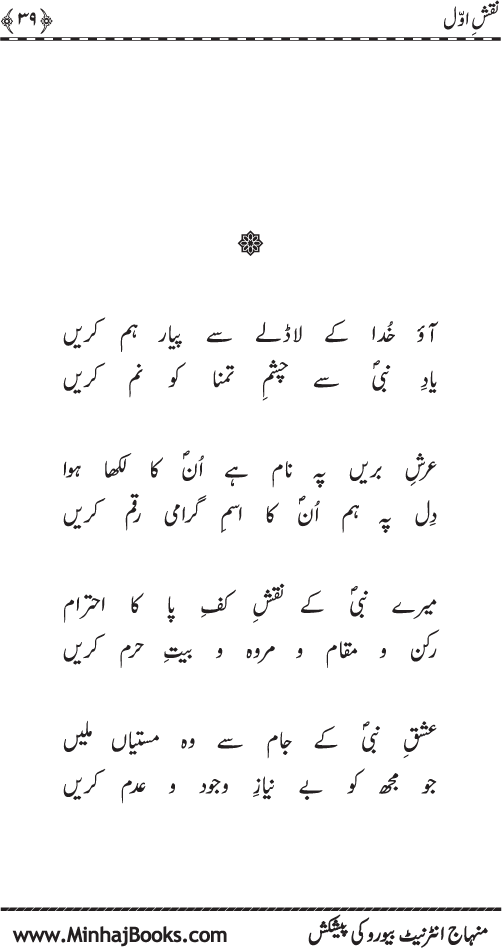 نقشِ اوّل ﴿۳۹﴾
آؤ خُدا کے لاڈلے سے پیار ہم کریں
یادِ نبیؐ سے چشمِ تمنا کو نم کریں
عرشِ بریں پہ نام ہے اُنؐ کا لکھا ہوا
دِل پہ ہم اُنؐ کا اسمِ گرامی رقم کریں
میرے نبیؐ کے نقشِ کفِ پا کا احترام
رکن و مقام و مروہ و بیتِ حرم کریں
عشقِ نبیؐ کے جام سے وہ مستیاں ملیں
جو مجھ کو بے نیازِ وجود و عدم کریں
منہاج انٹرنیٹ بیورو کی پیشکش www.MinhajBooks.com